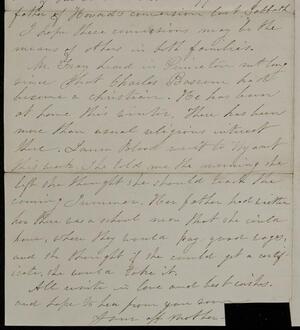 father of Howards conversion last Sabbath
I hope these conversions may be the
means of others in both families.
Mr. Gray heard in not long
since that Charles Bascom had
become a christian. He has been
at home this winter. There has been
more than usual religious interest
there. Laura Blood went to Wyanet
this week. She told me the morning she
left she thought she should teach the
coming Summer. Her father had written
her there was a school now that she could
have, where they would pay good wages,
and she thought if she could get a certif-
icate, she would take it.
All unite in love and best wishes.
and hope to hear from you soon
Your aff Mother